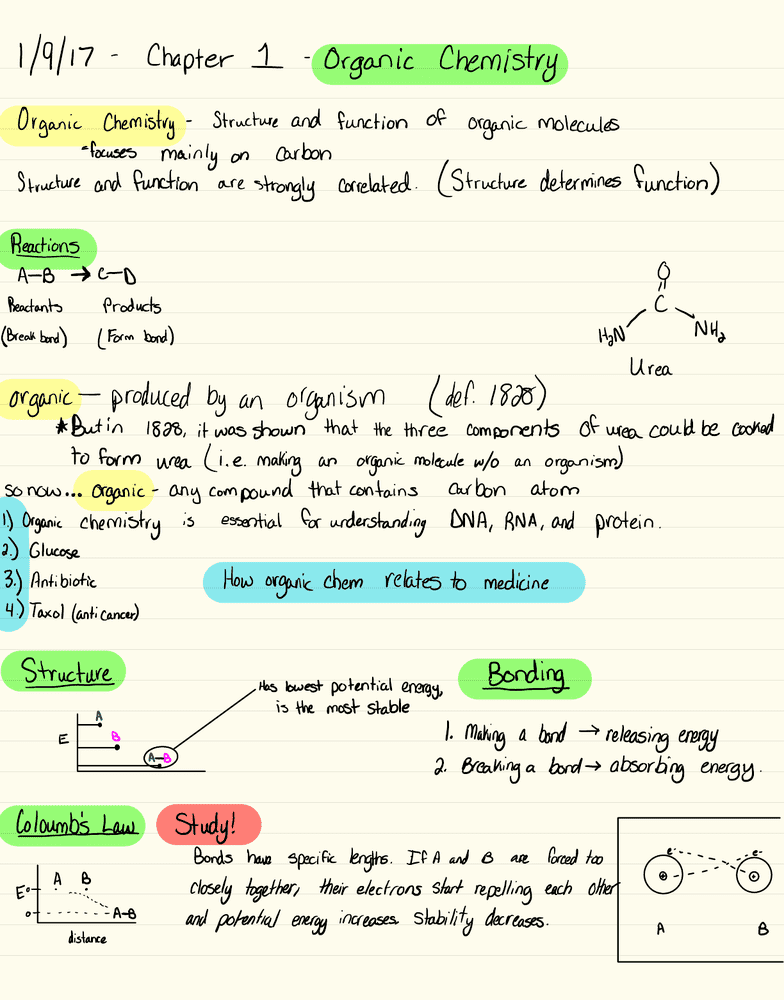 1/9/17 - Chapter 1 - Organic Chemistry
Organic Chemistry - Structure and function of organic molecules
-focuses mainly on carbon
Structure and function are strongly correlated. (Structure determines function)
Reactions
A-B → C-D
Reactants Products
(Break bond) (Form bond)
O
C
H₂N NH₂
Urea
organic - produced by an organism (def. 1828)
★But in 1828, it was shown that the three components of urea could be cooked
to form urea (i.e. making an organic molecule w/o an organism)
so now... organic - any compound that contains carbon atom
1.) Organic chemistry is essential for understanding DNA, RNA, and protein.
2.) Glucose
3.) Antibiotic
4.) Taxol (anti cancer)
How organic chem relates to medicine
Structure
E
A
B
A-B
Has lowest potential energy,
is the most stable
Bonding
1. Making a bond → releasing energy
2. Breaking a bond → absorbing energy.
Coloumb's Law Study!
E°
A B
o
A-B
distance
Bonds have specific lengths. If A and B are forced too
closely together, their electrons start repelling each other
and potential energy increases. Stability decreases.
e⁻ e⁻
A B